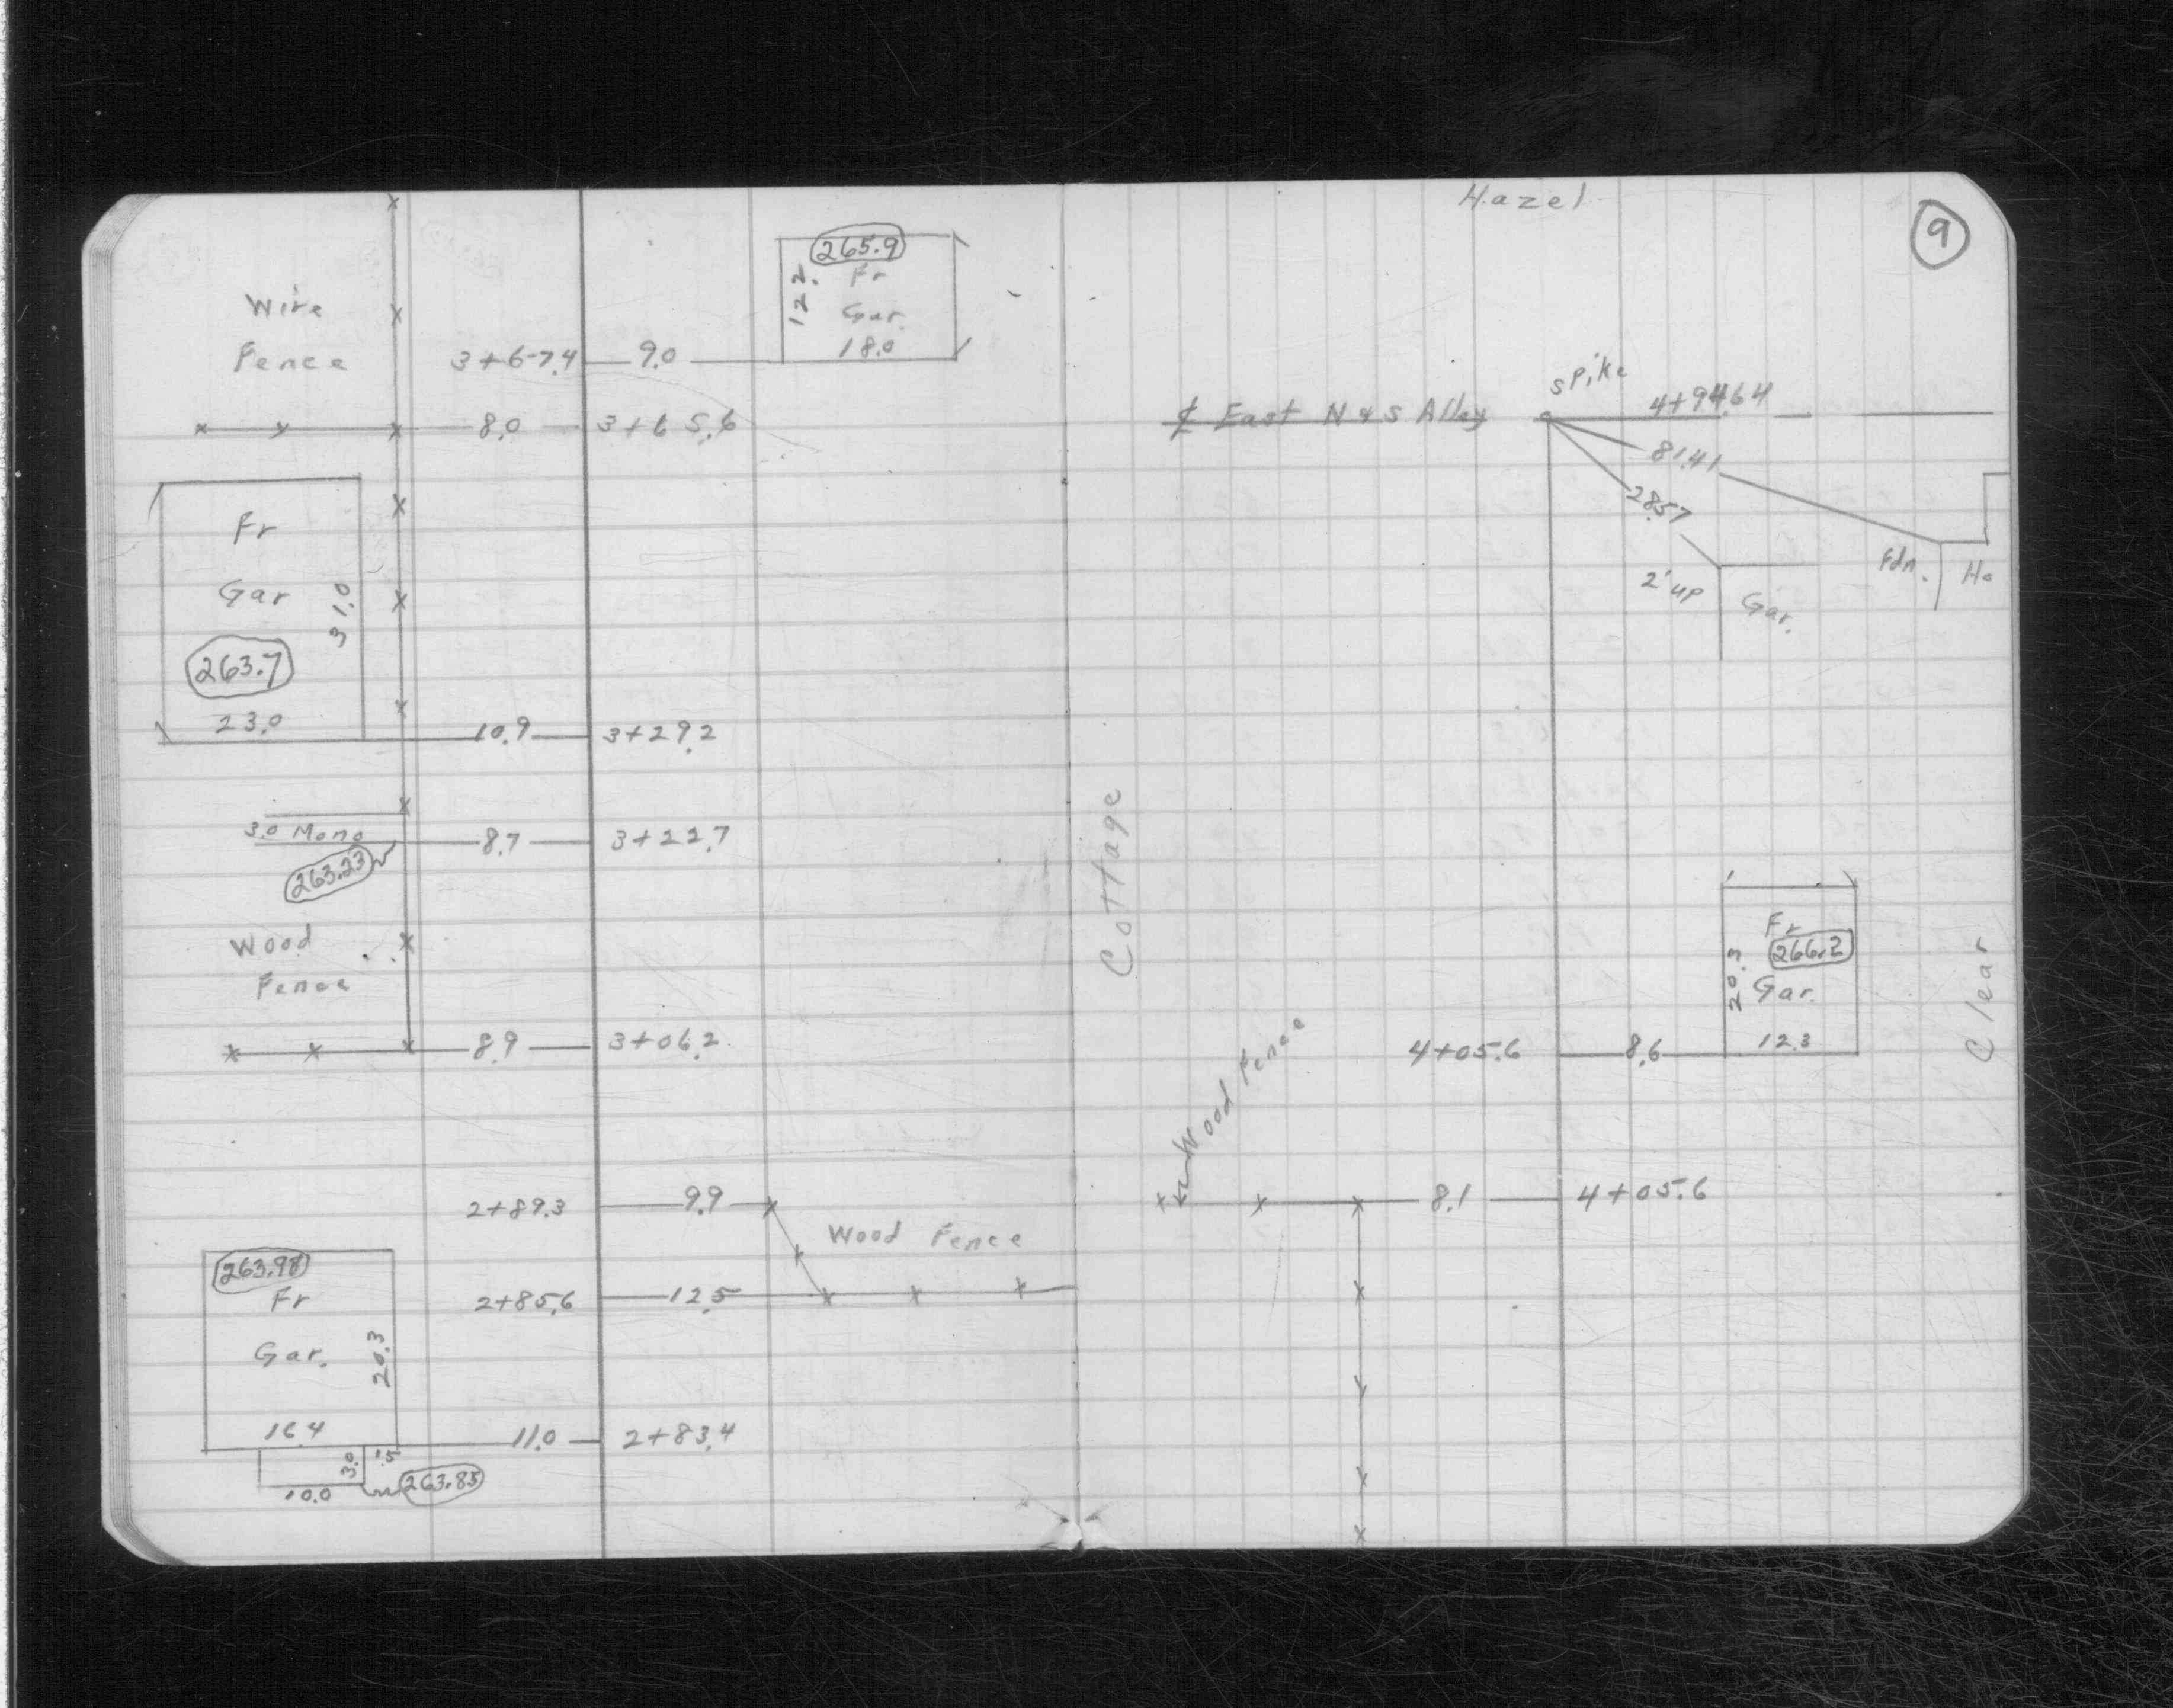 265.9
Fr
Gar.
12.2
18.0
Wire
Fence
3+67.4 9.0
8.0 3+65.6
Fr
Gar
31.0
263.7
23.0
10.9 3+29.2
3.0 Mono
8.7 3+22.7
263.23
Wood
Fence
8.9 3+06.2
2+89.3 9.9
Wood Fence
2+85.6 12.5
263.98
Fr
Gar.
20.3
16.4
11.0 2+83.4
3.0 1.5
10.0
263.85
Hazel
9
spike
4+94.64
℄ East N & S Alley
81.41
28.57
Fdn. Ho
2' up Gar.
Cottage
Clear
Fr
266.2
20.3
Gar.
12.3
4+05.6 8.6
Wood Fence
8.1 4+05.6